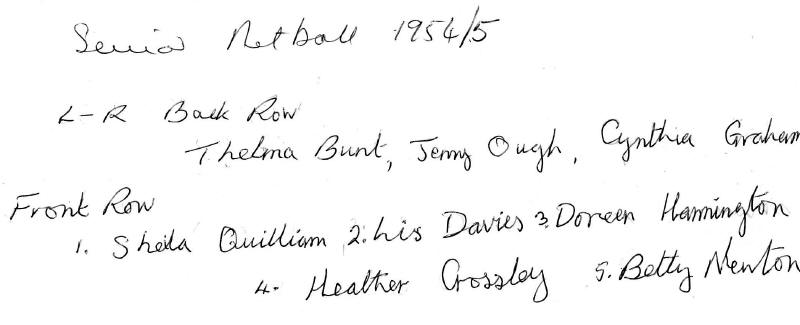 Senior Netball 1954/5
L-R Back Row
Thelma Bunt, Jenny Ough, Cynthia Graham
Front Row
1. Sheila Quilliam 2. Lis Davies 3. Doreen Hannington
4. Heather Crossley 5. Betty Newton